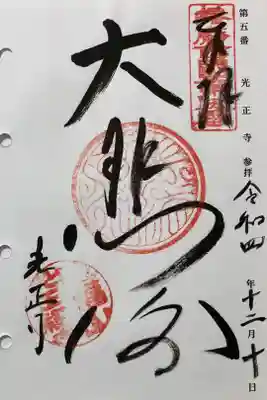 第五番 光正寺 参拝 令和四年十二月十日
奉拝
大悲閣
光正寺